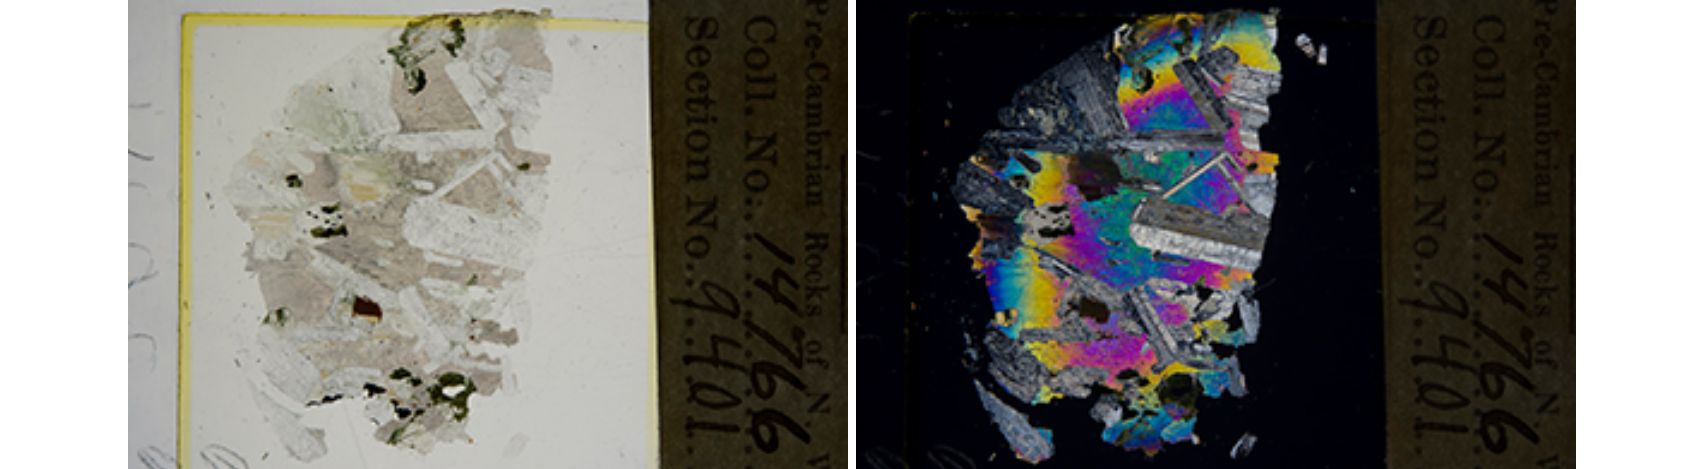 Pre-Cambrian Rocks of N
Coll. No... 14766
Section No... 9401.
Pre-Cambrian Rocks of N
Coll. No... 14766
Section No... 9401.